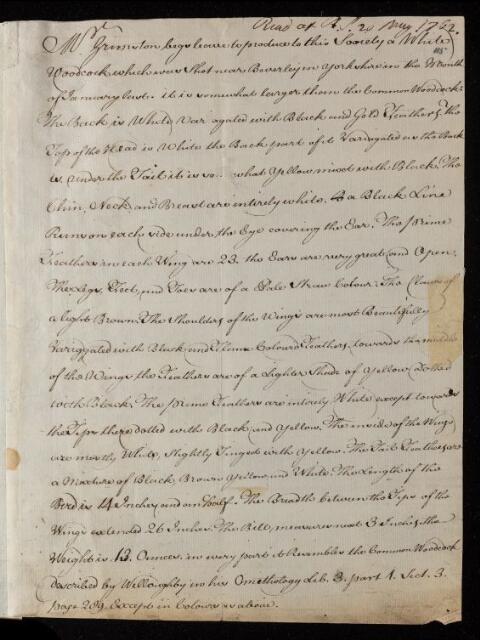 Read at R.S. 20 May 1762.
115
Mr. Grimston begs leave to produce to this Society a White
Woodcock which was Shot near Beverley in Yorkshire in the Month
of January last. it is somewhat larger then the Common Woodcocks
The Back is White Varigated with Black and Gold Feathers, the
Top of the Head is White the Back part of it Varigated as the Back
is, under the Tail it is some what Yellow mixt with Black. The
Chin, Neck and Breast are entirely white. a Black Line
Runs on each side under the Eye covering the Ear. The Prime
Feathers in each Wing are 23. the Ears are very great and Open.
The Legs, Feet, and Toes are of a Pale Straw Colour. The Claws of
a light Brown. The Shoulders of the Wings are most Beautifully
Varigated with Black and Coloured Feathers, towards the middle
of the Wings the Feathers are of a Lighter Shade of Yellow dotted
with Black. The Prime Feathers are intirely White except towards
the Tips there dotted with Black and Yellow. The inside of the Wings
are mostly White, Slightly Tinged with Yellow. The Tail Feathers are
a Mixture of Black Brown Yellow and White. The Length of the
Bird is 14 Inches and an half. The Breadth between the Tips of the
Wings extended 26 Inches. The Bill, measures near 3 Inches, the
Weight is 13 Ounces. in every part it Resembles the Common Woodcock
described by Willoughby in his Ornithology Lib. 3. part 1. Sect. 3.
page 289. Except in Colour as above.